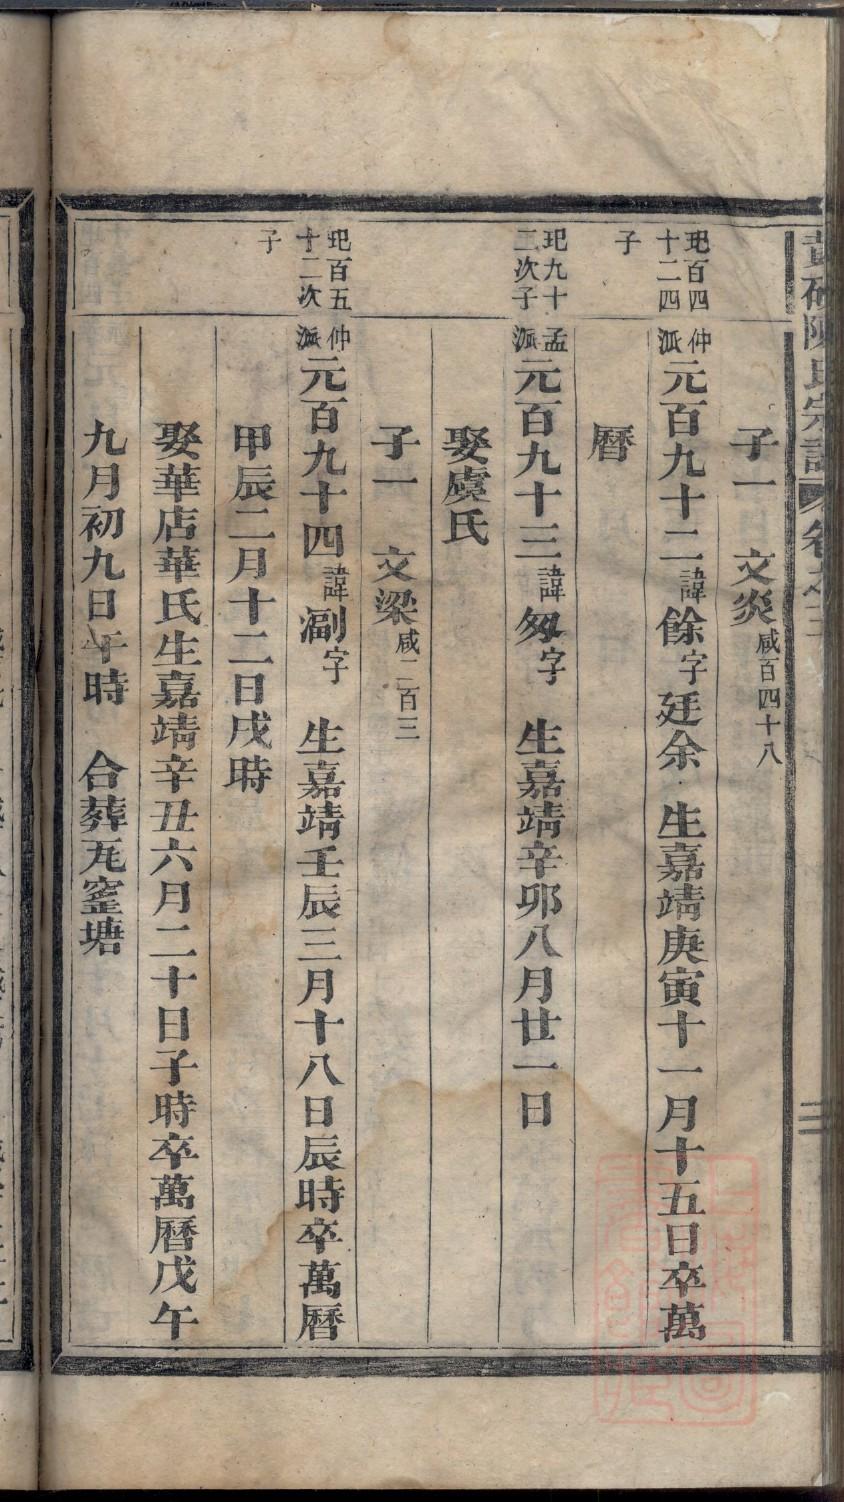 陳氏宗譜 卷之三
子一 文炎 咸百四十八
玘百四十二四子
仲派 元百九十二 諱餘 字廷余 生嘉靖庚寅十一月十五日卒萬
曆
玘九十三次子
孟派 元百九十三 諱匆 字 生嘉靖辛卯八月廿一日
娶虞氏
子一 文梁 咸二百三
玘百五十二次子
仲派 元百九十四 諱 字 生嘉靖壬辰三月十八日辰時卒萬曆
甲辰二月十二日戌時
娶華店華氏生嘉靖辛丑六月二十日子時卒萬曆戊午
九月初九日午時 合葬瓦窰塘